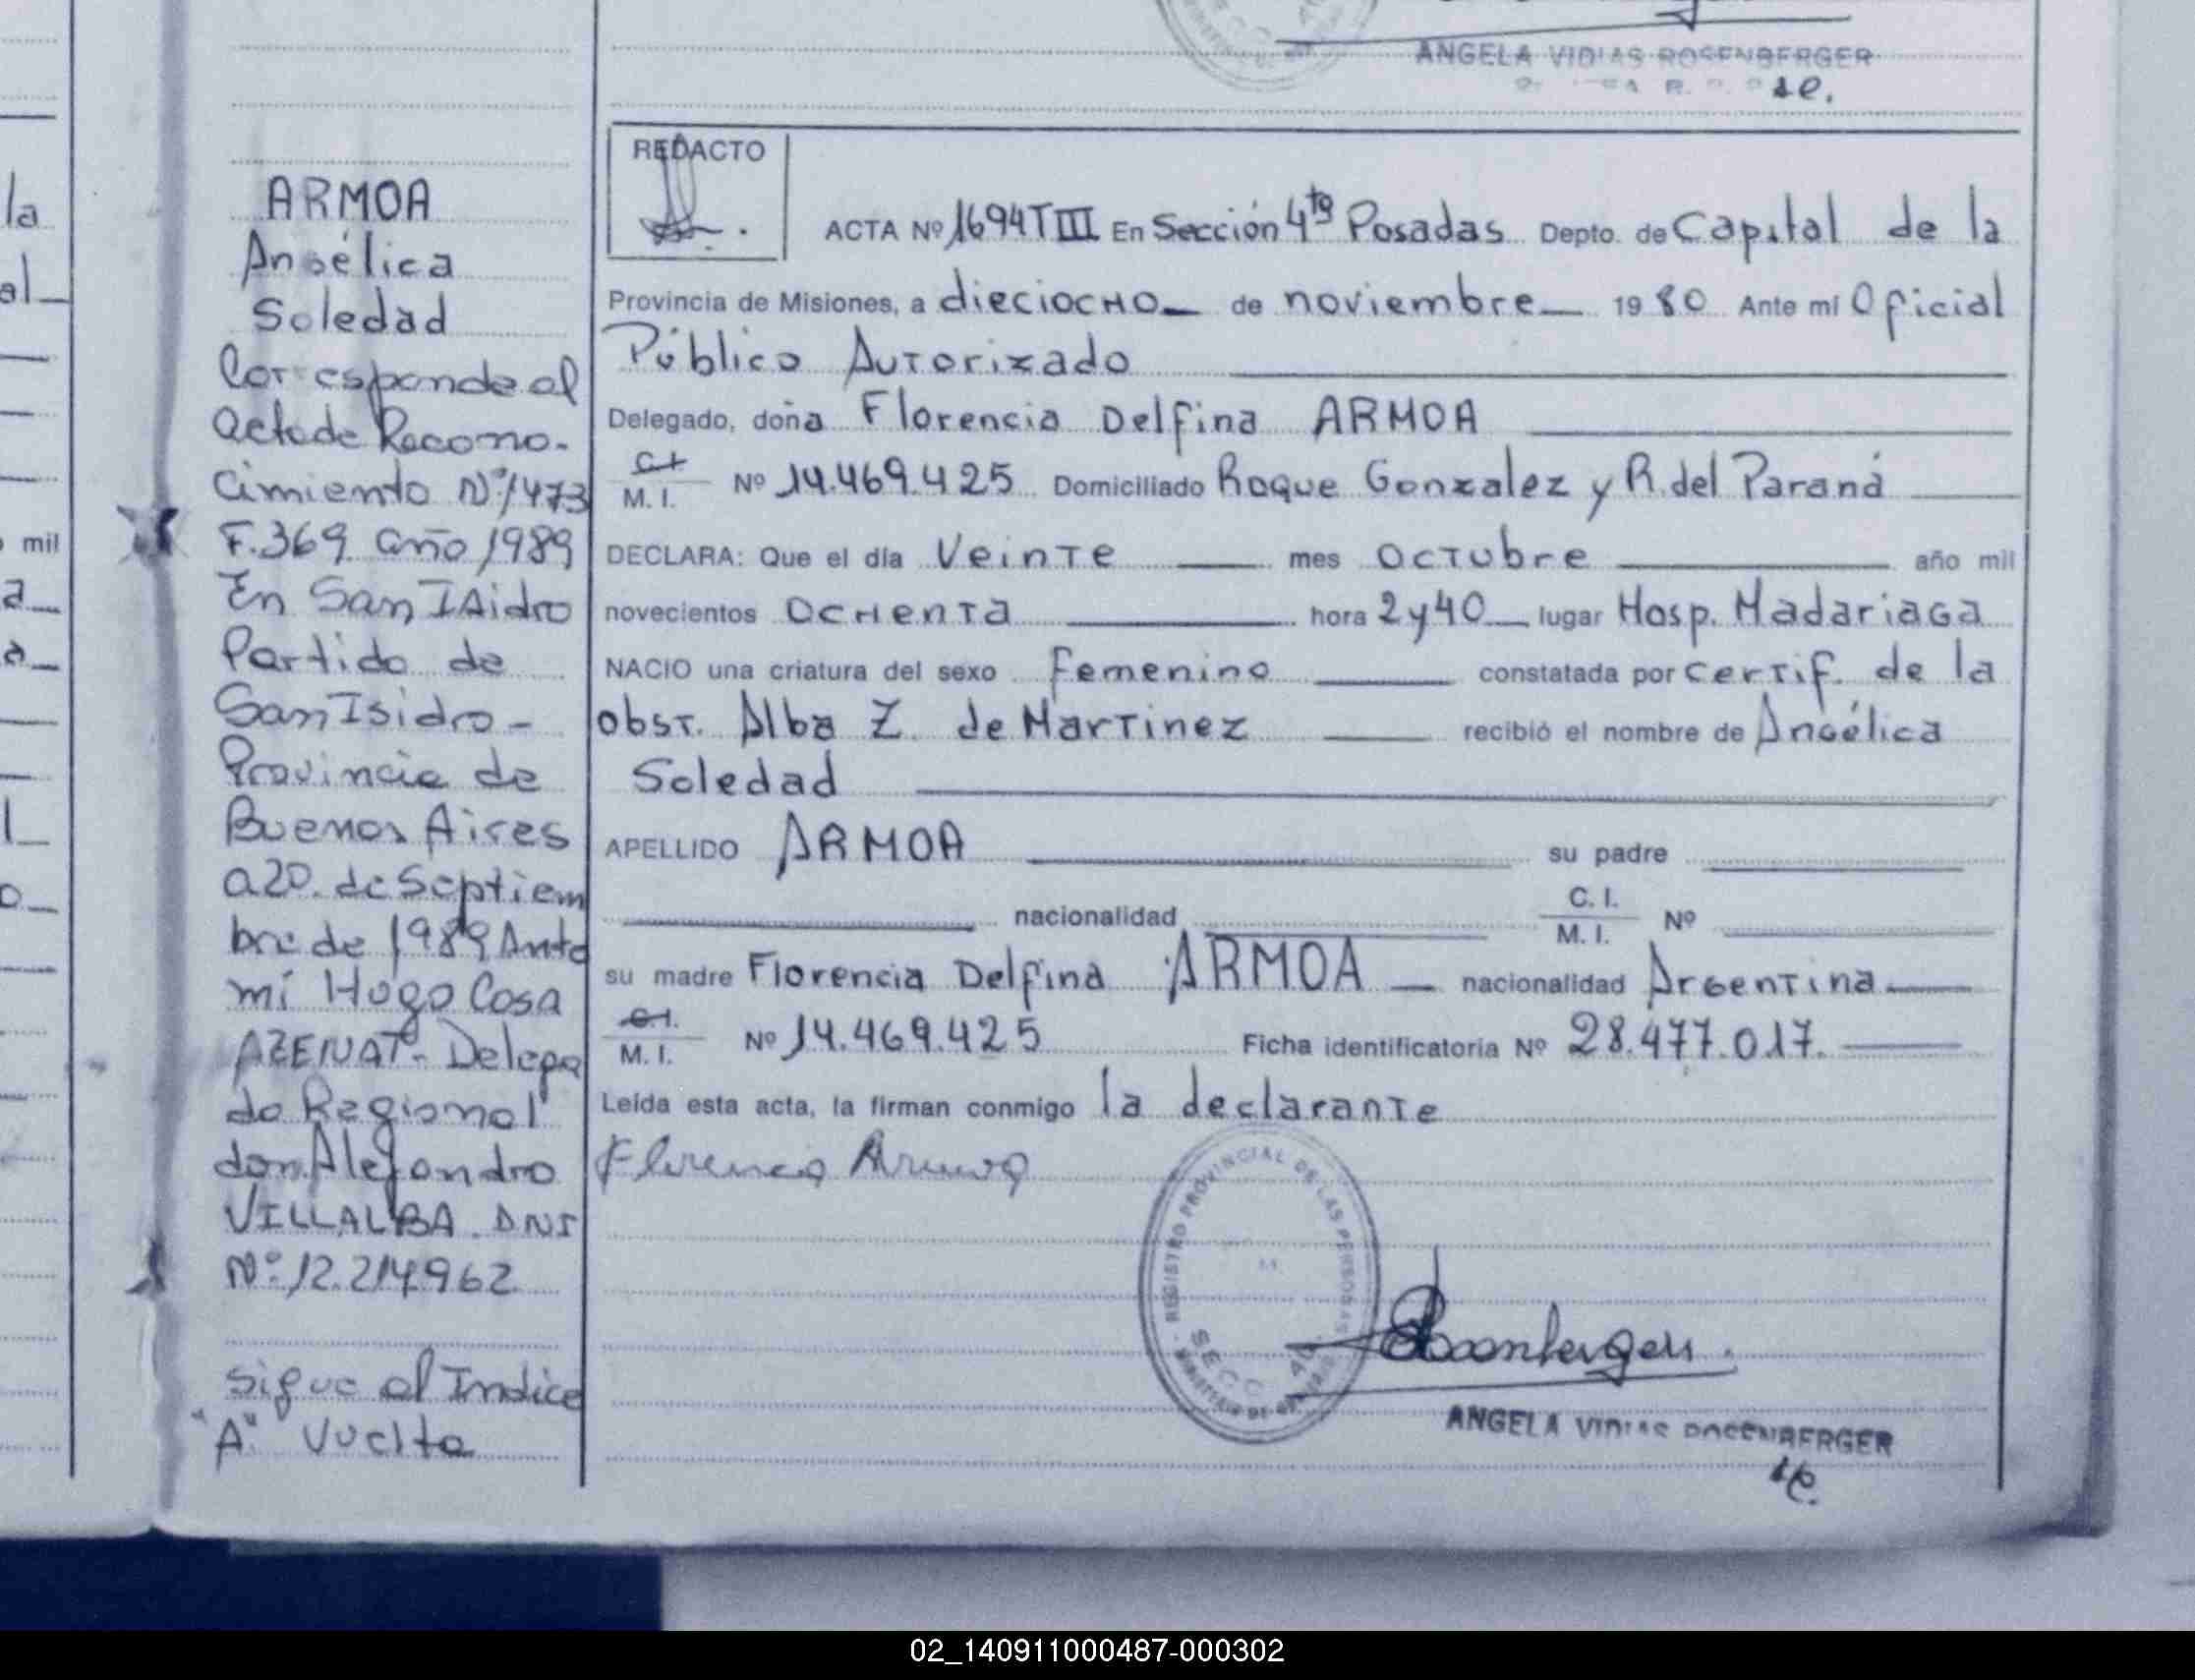 ANGELA VIDIAS ROSENBERGER
ARMOA
Angélica
Soledad
Corresponde al
acta de Recono-
cimiento Nº 1473
F.369 año 1989
En San Isidro
Partido de
San Isidro-
Provincia de
Buenos Aires
a 20. de Septiem
bre de 1989 Ante
mí Hugo Cosa
AZENAT- Delega
do Regional
don Alejandro
VILLALBA. DNI
Nº: 12.214.962
Sigue al Indice
"A" Vuelta
REDACTO
ACTA Nº 1694 T III En Sección 4ta Posadas Depto. de Capital de la
Provincia de Misiones, a dieciocHo de noviembre 1980 Ante mí Oficial
Público Autorizado
Delegado, doña Florencia Delfina ARMOA
C.I.
M. I. Nº 14.469.425 Domiciliado Roque Gonzalez y R. del Paraná
DECLARA: Que el día Veinte mes Octubre año mil
novecientos OcHenta hora 2 y 40 lugar Hosp. Madariaga
NACIO una criatura del sexo Femenino constatada por certif. de la
obst. Alba Z. de Martinez recibió el nombre de Angélica
Soledad
APELLIDO ARMOA su padre
nacionalidad C. I.
M. I. Nº
su madre Florencia Delfina ARMOA nacionalidad Argentina
C.I.
M. I. Nº 14.469.425 Ficha identificatoria Nº 28.477.017.
Leída esta acta, la firman conmigo la declarante
Florencia Armoa
REGISTRO PROVINCIAL DE LAS PERSONAS
SECC 4a.
Rosenberger
ANGELA VIDIAS ROSENBERGER
mil
02_140911000487-000302